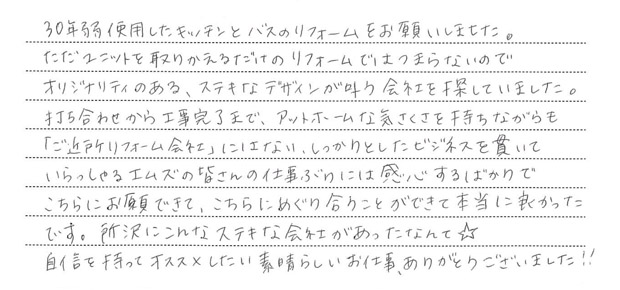 30年弱使用したキッチンとバスのリフォームをお願いしました。
ただユニットを取りかえるだけのリフォームではつまらないので
オリジナリティのある、ステキなデザインが叶う会社を探していました。
打ち合わせから工事完了まで、アットホームな気さくさを持ちながらも
「ご近所リフォーム会社」にはない、しっかりとしたビジネスを貫いて
いらっしゃるエムズの皆さんの仕事ぶりには感心するばかりで
こちらにお願いできて、こちらにめぐり合うことができて本当に良かった
です。所沢にこんなステキな会社があったなんて☆
自信を持ってオススメしたい素晴らしいお仕事、ありがとうございました!!